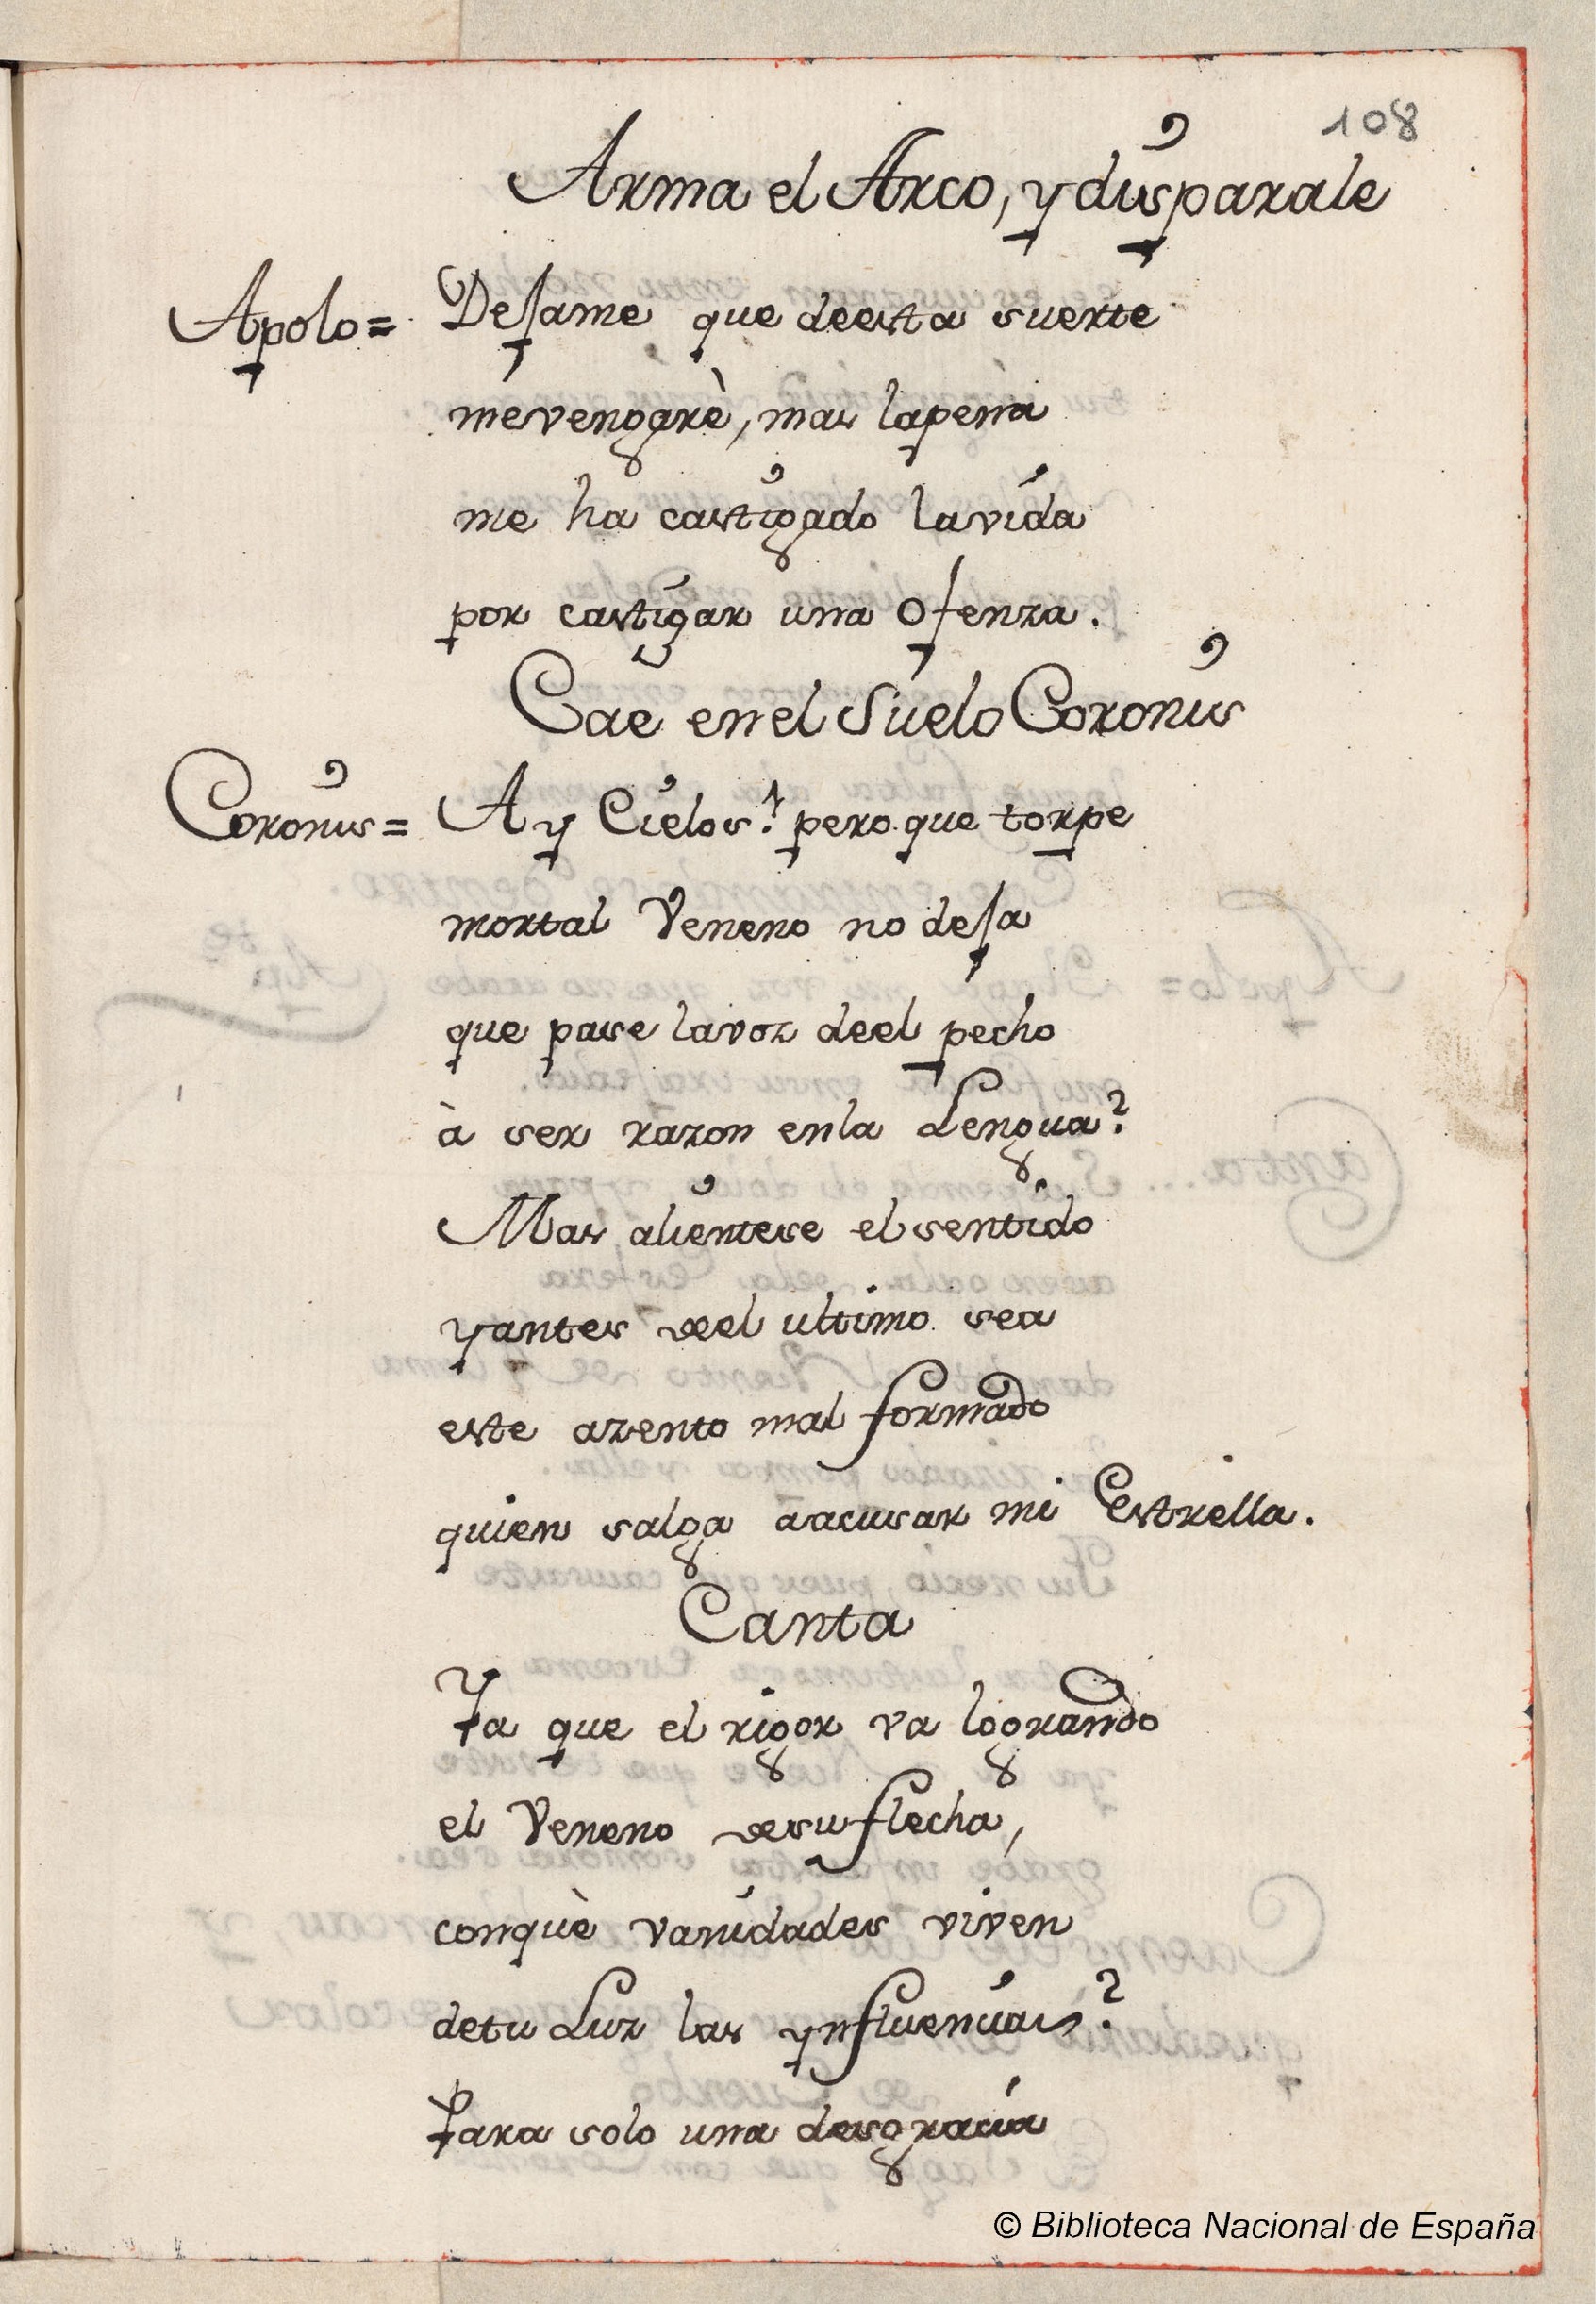 108
Arma el Arco, y disparale
Apolo= Dejame que deesta suerte
mevengarè, mas lapena
me ha castigado lavida
por castigar una Ofenza.
Cae enel Suelo Coronis
Coronis= Ay Cielos! pero que torpe
mortal Veneno no deja
que pase lavoz deel pecho
à ser razon enla Lengua?
Mas alientese elsentido
yantes deel ultimo sea
este azento mal formado
quien salga aacusar mi Estrella.
Canta
Ya que el rigor va logrando
el Veneno desu flecha,
conquè vanidades viven
detu Luz las ynfluencias?
Para solo una desgracia
© Biblioteca Nacional de España